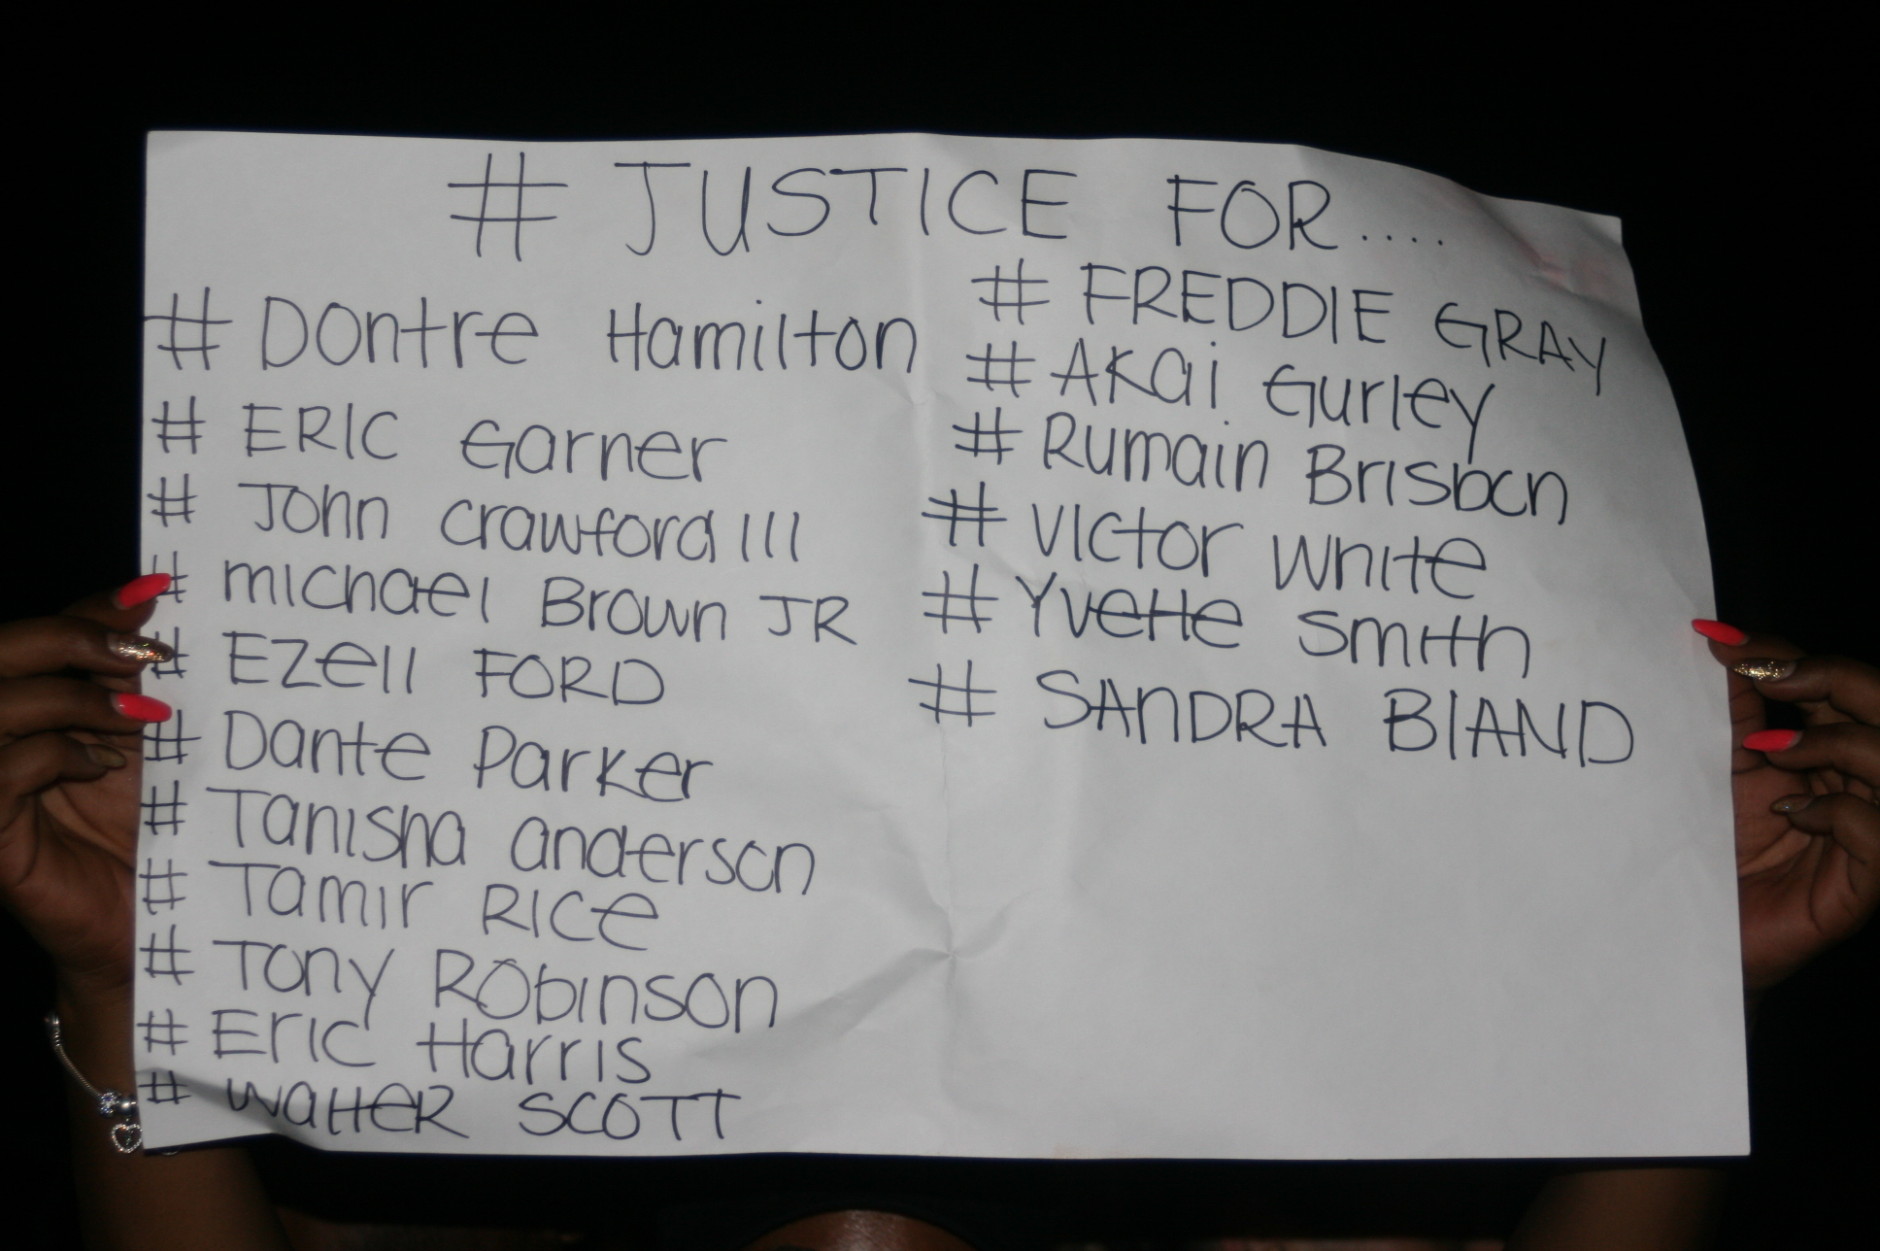 # JUSTICE FOR....
# Dontre Hamilton
# ERIC Garner
# John crawford III
# michael Brown JR
# EZell FORD
# Dante Parker
# Tanisha anderson
# Tamir RICe
# Tony RObinson
# Eric Harris
# walteR SCOTT
# FREDDIE GRAY
# AKai Gurley
# Rumain Brisbon
# Victor White
# Yvette Smith
# SAnDRA BlAND